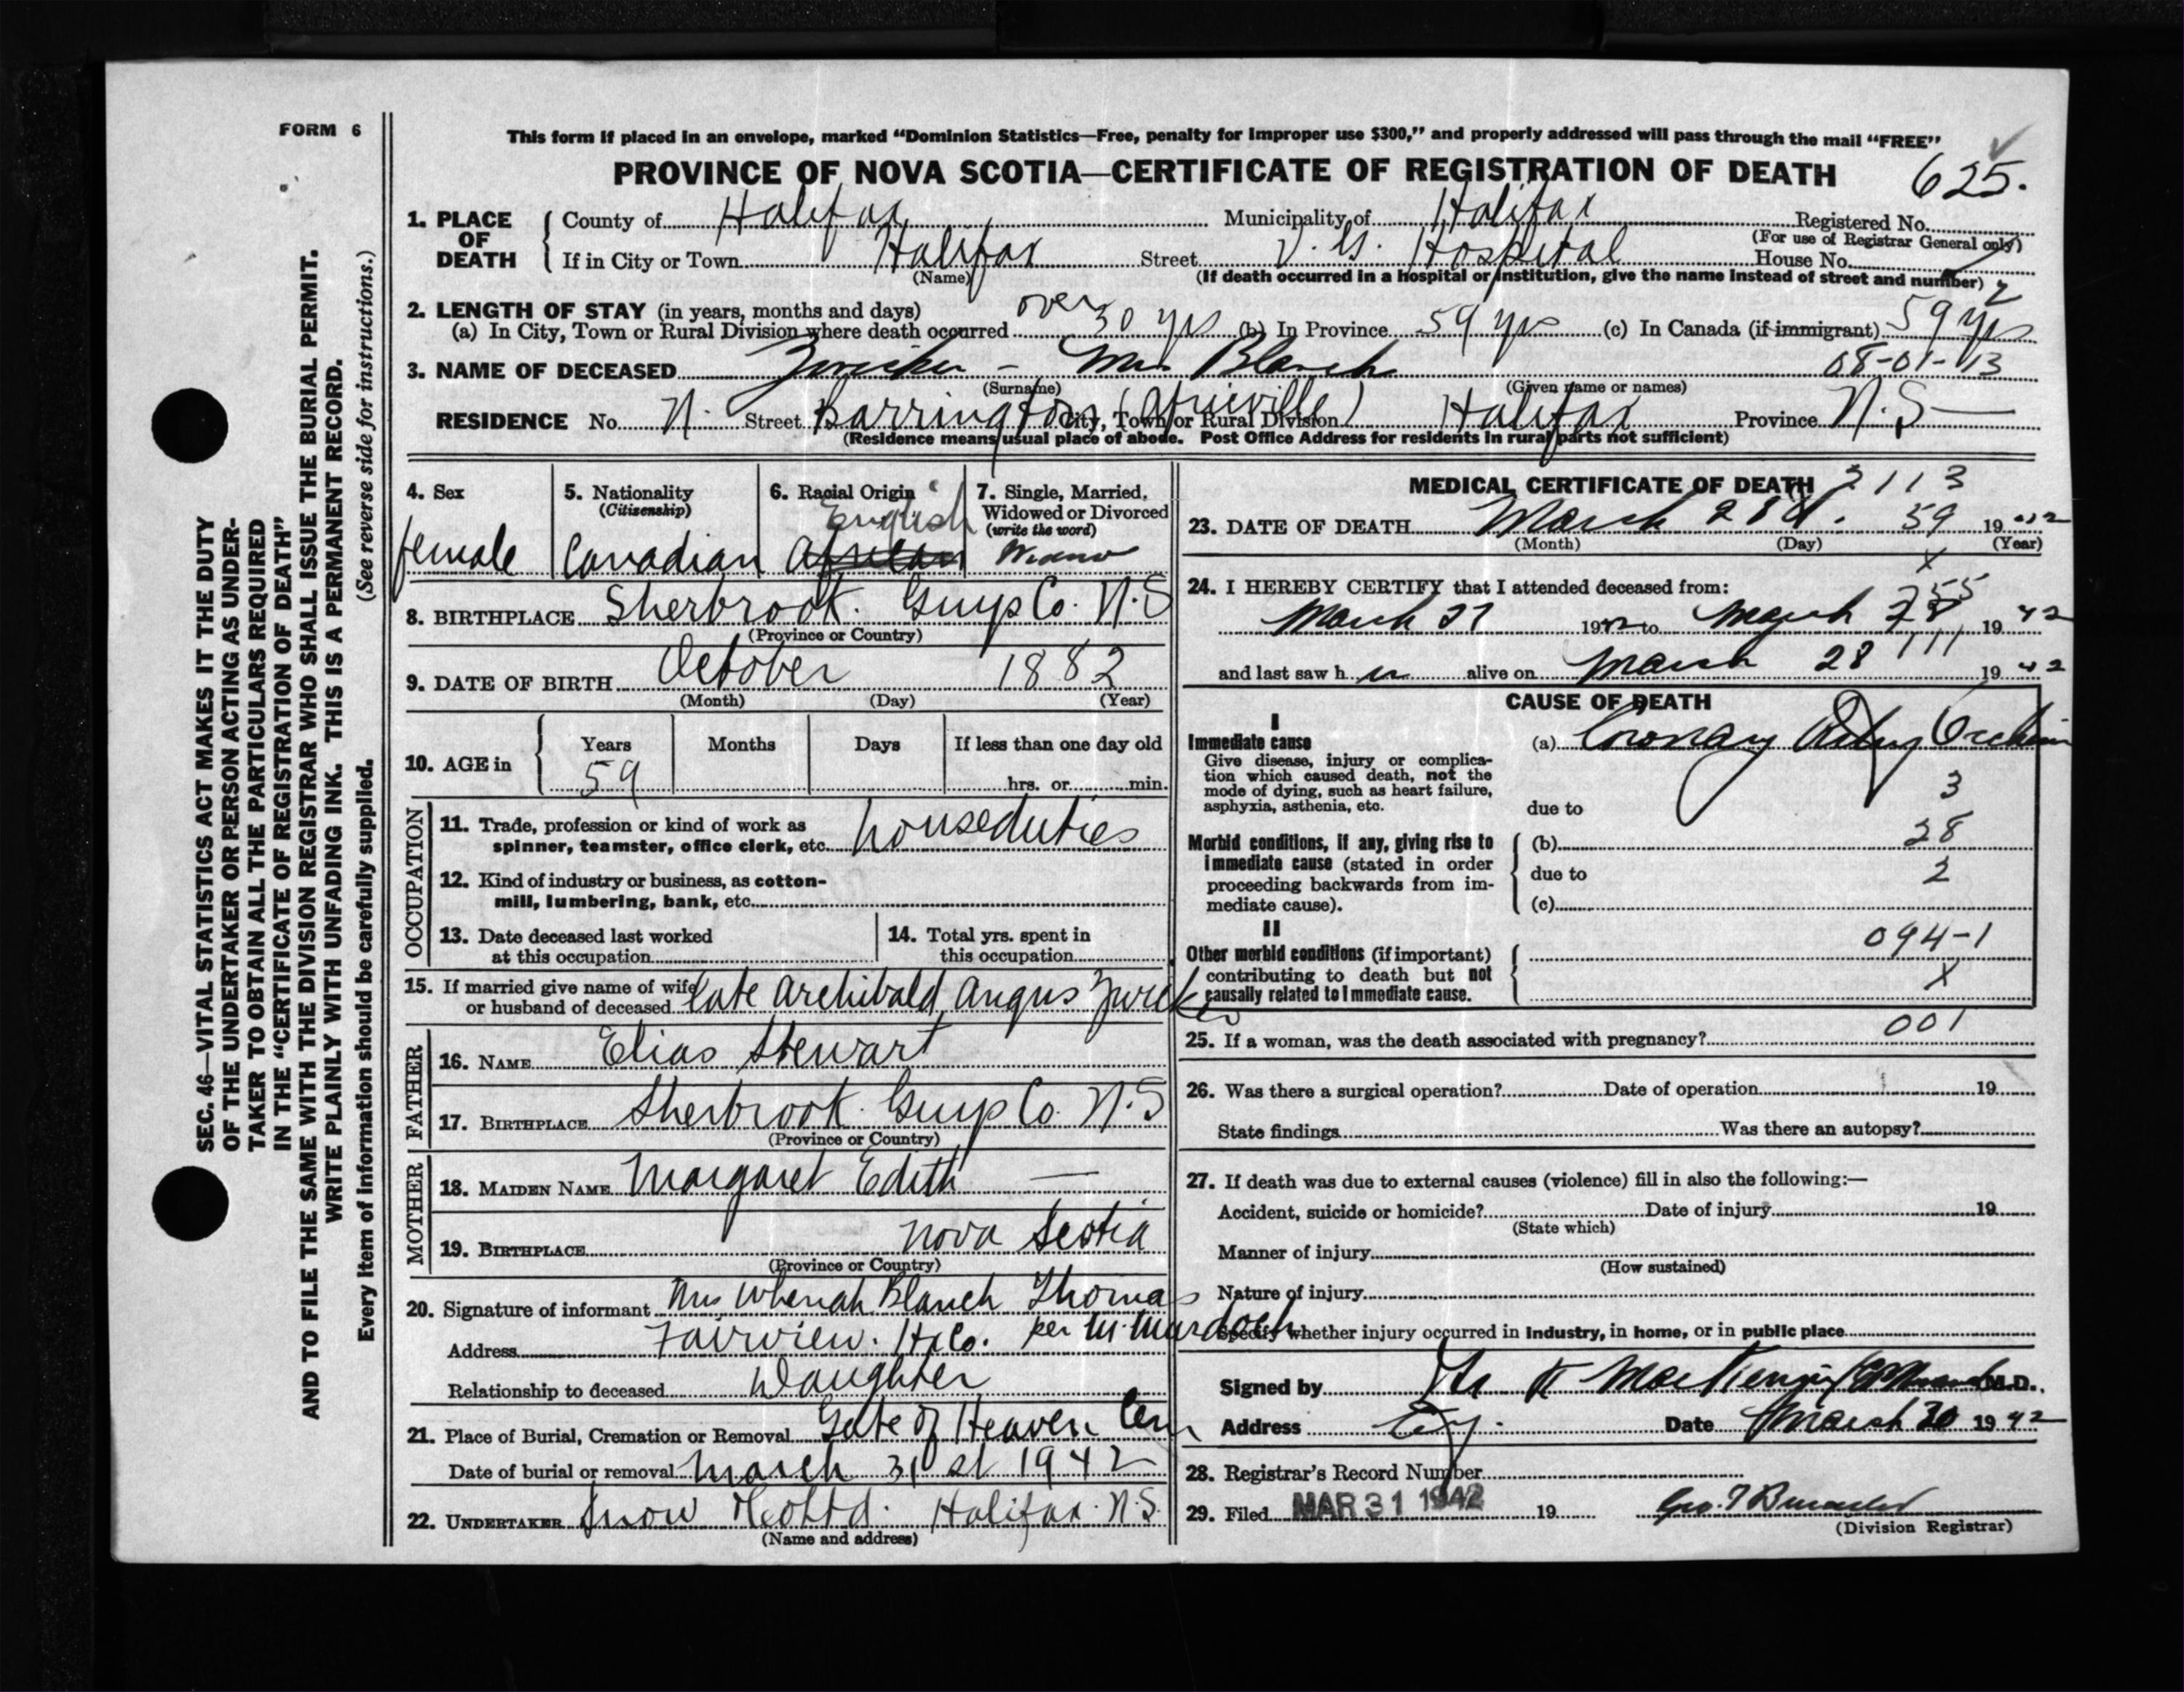 FORM 6
This form if placed in an envelope, marked “Dominion Statistics—Free, penalty for improper use $300,” and properly addressed will pass through the mail “FREE”
PROVINCE OF NOVA SCOTIA—CERTIFICATE OF REGISTRATION OF DEATH 625.
1. PLACE OF DEATH { County of Halifax Municipality of Halifax Registered No.
(For use of Registrar General only)
If in City or Town Halifax Street V. G. Hospital House No.
(Name) (If death occurred in a hospital or institution, give the name instead of street and number)
2. LENGTH OF STAY (in years, months and days)
(a) In City, Town or Rural Division where death occurred over 30 yrs (b) In Province 59 yrs (c) In Canada (if immigrant) 59 yrs
3. NAME OF DECEASED Zwicker - Mrs Blanch 08-01-13
(Surname) (Given name or names)
RESIDENCE No. N. Street Barrington City, Town or Rural Division Halifax Province N.S
(Residence means usual place of abode. Post Office Address for residents in rural parts not sufficient)
4. Sex female
5. Nationality (Citizenship) Canadian
6. Racial Origin English
7. Single, Married, Widowed or Divorced (write the word) Widow
8. BIRTHPLACE Sherbrook. Guys Co. N.S
(Province or Country)
9. DATE OF BIRTH October 1882
(Month) (Day) (Year)
10. AGE in { Years 59 Months Days If less than one day old
hrs. or min.
OCCUPATION
11. Trade, profession or kind of work as
spinner, teamster, office clerk, etc. houseduties
12. Kind of industry or business, as cotton-
mill, lumbering, bank, etc.
13. Date deceased last worked
at this occupation
14. Total yrs. spent in
this occupation
15. If married give name of wife
or husband of deceased late Archibald Angus Zwicker
FATHER
16. NAME Elias Stewart
17. BIRTHPLACE Sherbrook. Guys Co. N.S
(Province or Country)
MOTHER
18. MAIDEN NAME Margaret Edith —
19. BIRTHPLACE Nova Scotia
(Province or Country)
20. Signature of informant Mrs Blanch Thomas
Address Fairview. Hx Co. per M. Murdoch
Relationship to deceased Daughter
21. Place of Burial, Cremation or Removal Gate of Heaven Cem
Date of burial or removal March 31 st 1942
22. UNDERTAKER Snow & Co Ltd. Halifax. N.S.
(Name and address)
MEDICAL CERTIFICATE OF DEATH 2113
23. DATE OF DEATH March 28th. 59 1942
(Month) (Day) (Year)
X
24. I HEREBY CERTIFY that I attended deceased from:
March 27 1942 to March 28 1942
and last saw her alive on March 28 1942
111
CAUSE OF DEATH
I
Immediate cause
Give disease, injury or complica-
tion which caused death, not the
mode of dying, such as heart failure,
asphyxia, asthenia, etc.
(a) Coronary Artery Occlusion
3
due to
Morbid conditions, if any, giving rise to
immediate cause (stated in order
proceeding backwards from im-
mediate cause).
(b) 28
due to 2
(c)
II
Other morbid conditions (if important)
contributing to death but not
causally related to immediate cause.
094-1
X
25. If a woman, was the death associated with pregnancy? 001
26. Was there a surgical operation? Date of operation 19
State findings Was there an autopsy?
27. If death was due to external causes (violence) fill in also the following:—
Accident, suicide or homicide? Date of injury 19
(State which)
Manner of injury
(How sustained)
Nature of injury
Specify whether injury occurred in industry, in home, or in public place
Signed by K MacKenzie M.D.
Address City. Date March 30 1942
28. Registrar's Record Number
29. Filed MAR 31 1942 19
(Division Registrar)
SEC. 46—VITAL STATISTICS ACT MAKES IT THE DUTY
OF THE UNDERTAKER OR PERSON ACTING AS UNDER-
TAKER TO OBTAIN ALL THE PARTICULARS REQUIRED
IN THE “CERTIFICATE OF REGISTRATION OF DEATH”
AND TO FILE THE SAME WITH THE DIVISION REGISTRAR WHO SHALL ISSUE THE BURIAL PERMIT.
WRITE PLAINLY WITH UNFADING INK. THIS IS A PERMANENT RECORD.
Every item of information should be carefully supplied. (See reverse side for instructions.)